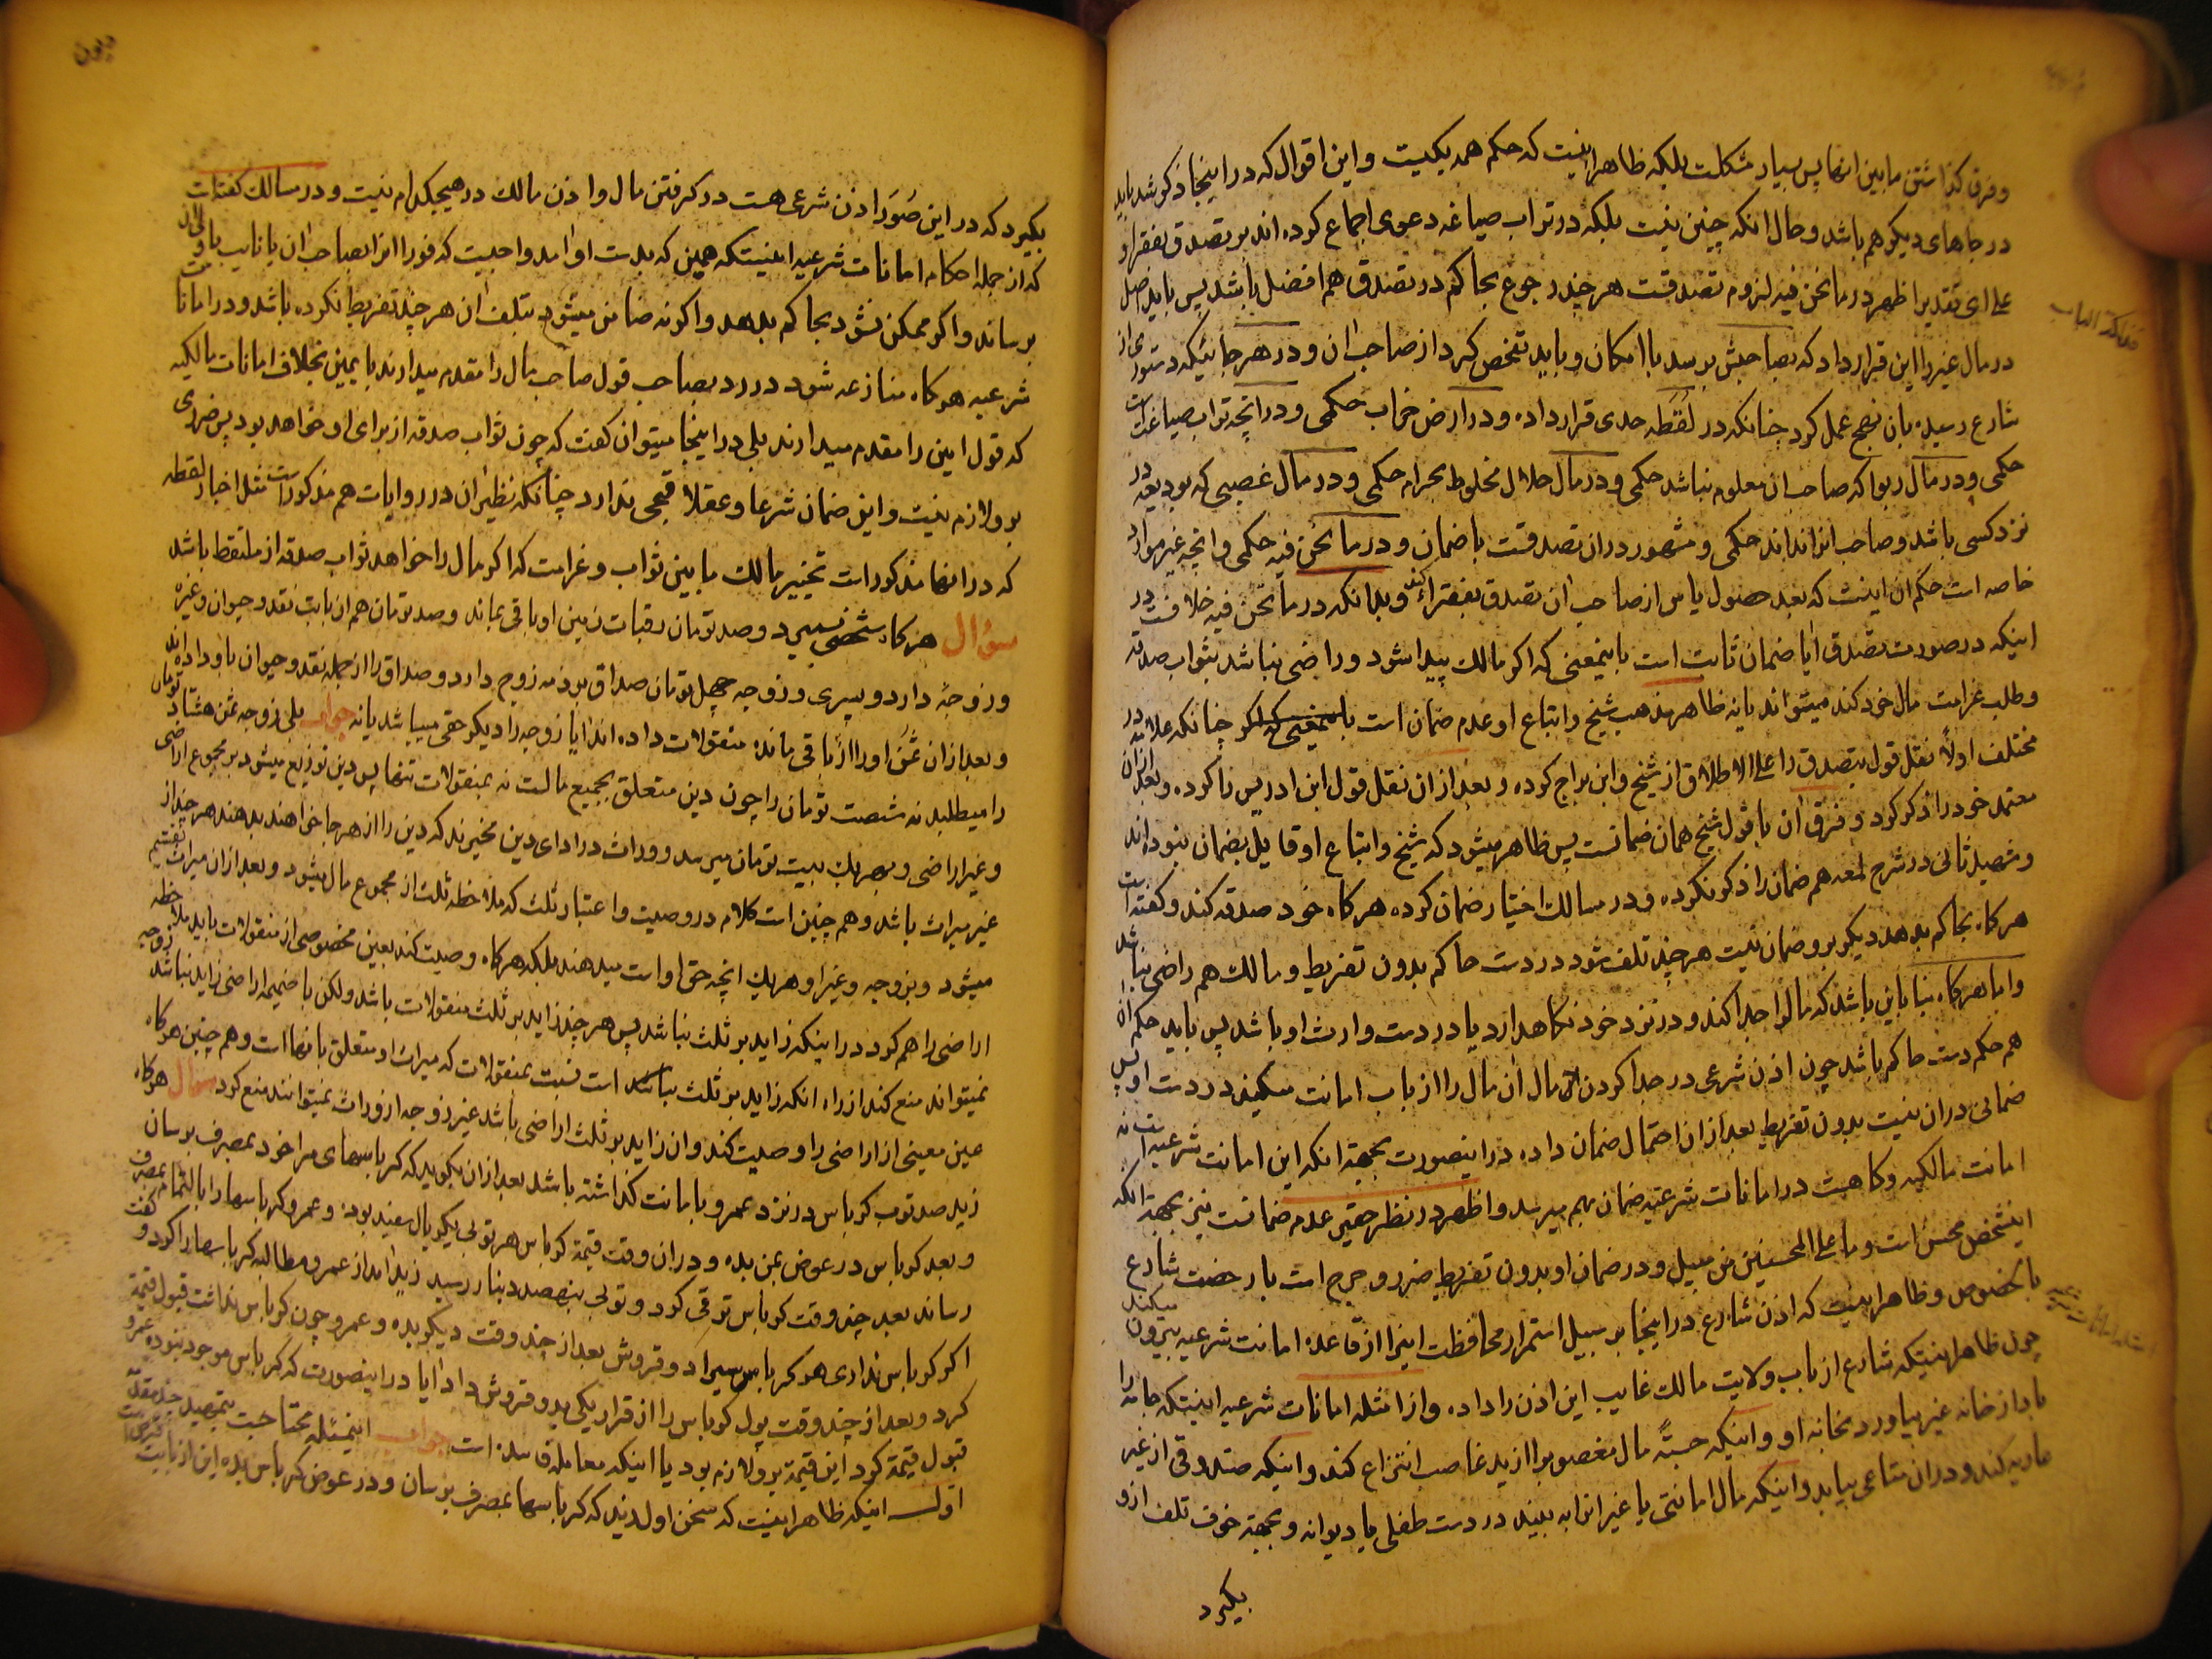 و فرق گذاشتن مابین انها پس بسیار مشکلست بلکه ظاهر اینست که حکم همه یکیست و این اقوال که در اینجا ذکور شد باید
در جاهای دیگر هم باشد و حال انکه چنین نیست بلکه در تراب صیاغه دعوی اجماع کرده اند بر تصدق بفقرا و
علی ای تقدیر اظهر در ما نحن فیه لزوم تصدقست هر چند رجوع بحاکم در تصدق هم افضل باشد پس باید اصل
در مال غیر را این قرار داد که بصاحبش برسد با امکان و باید تفحص کرد از صاحب ان و در هر جائیکه دستوری از
شارع رسیده بان نهج عمل کرد چنانکه در لقطه حدی قرار داده و در ارض خراب حکمی و در انچه تراب صیاغت است
حکمی و در مال ربوا که صاحب ان معلوم نباشد حکمی و در مال حلال مخلوط بحرام حکمی و در مال غصبی که بودیعه در
نزد کسی باشد و صاحب انرا نداند حکمی و مشهور در ان تصدقست با ضمان و در ما نحن فیه حکمی و انچه غیر موارد
خاصه است حکم ان اینست که بعد حصول یاس از صاحب ان تصدق بفقراء کند و بدانکه در ما نحن فیه خلافست در
اینکه در صورت تصدق ایا ضمان ثابت است باینمعنی که اگر مالک پیدا شود و راضی نباشد بثواب صدقه
و طلب غرامت مال خود کند میتواند یا نه ظاهر مذهب شیخ و اتباع او عدم ضمان است چنانکه علامه در
مختلف اولا نقل قول بتصدق را علی الاطلاق از شیخ و ابن براج کرده و بعد از ان نقل قول ابن ادریس را کرده و بعد از ان
معتمد خود را ذکر کرد و فرق ان با قول شیخ همان ضمانست پس ظاهر میشود که شیخ و اتباع او قایل بضمان نبوده اند
و شهید ثانی در شرح لمعه هم ضمان را ذکر نکرده و در مسالک اختیار ضمان کرده هرگاه خود صدقه کند و گفته است
هرگاه بحاکم بدهد دیگر بر و ضمان نیست هر چند تلف شود در دست حاکم بدون تفریط و مالک هم راضی نباشد
و اما هرگاه بنا باین باشد که مال را جدا کند و در نزد خود نگاهدارد یا در دست وارث او باشد پس باید حکم ان
هم حکم دست حاکم باشد چون اذن شرعی در جدا کردن مال ان مال را از باب امانت میکند در دست او پس
ضمانی در ان نیست بدون تفریط بعد از ان احتمال ضمان داده در اینصورت بجهة انکه این امانت شرعیه است نه
امانت مالکیه و گاهست در امانات شرعیه ضمان بهم میرسد و اظهر در نظر حقیر عدم ضمانست نیز بجهة انکه
اینشخص محسن است و ما علی المحسنین من سبیل و در ضمان او بدون تفریط ضرر و حرج است با رخصت شارع
بالخصوص و ظاهر اینست که اذن شارع در اینجا بر سبیل استمرار محافظت اینرا از قاعده امانت شرعیه بیرون میکند
چون ظاهر اینستکه شارع از باب ولایت مالک غایب این اذن را داده و از امثله امانات شرعیه اینستکه جامه را
باد از خانه غیر بیاورد بخانه او و اینکه حسبةً مال مغصوب را از ید غاصب انتزاع کند و اینکه صندوقی از غیر
عاریه کند و در ان متاعی بیابد و اینکه مال امانتی یا غیر انرا به بیند در دست طفلی یا دیوانه و بجهة خوف تلف از او
بگیرد
بگیرد که در این صُوَر اذن شرعی هست در گرفتن مال و اذن مالک در هیچکدام نیست و در مسالک گفته است
که از جمله احکام امانات شرعیه اینستکه همین که بدست او امد واجبست که فورا انرا بصاحب ان یا نایب یا ولی ان
برساند و اگر ممکن نشود بحاکم بدهد و اگر نه ضامن میشود بتلف ان هر چند تفریط نکرده باشد و در امانات
شرعیه هرگاه منازعه شود در رد بصاحب قول صاحب مال را مقدم میدارند با یمین بخلاف امانات مالکیه
که قول امین را مقدم میدارند بلی در اینجا میتوان گفت که چون ثواب صدقه از برای او خواهد بود پس ضرری
بر و لازم نیست و این ضمان شرعا و عقلا قبحی ندارد چنانکه نظیر ان در روایات هم مذکور است مثل اخبار لقطه
که در انها مذکور است تخییر مالک مابین ثواب و غرامت که اگر مال را خواهد ثواب صدقه از ملتقط باشد
سؤال هرگاه شخصی بمیرد و صد تومان رقبات زمین او باقی بماند و صد تومان هم از بابت نقد و حیوان و غیره
و زوجهٔ دارد و پسری و زوجه چهل تومان صداق بر ذمه زوج دارد و صداق را از جمله نقد و حیوان باو داده اند
و بعد از ان ثُمُن او را از باقی مانده منقولات داده اند ایا زوجه را دیگر حقی میباشد یا نه جواب بلی زوجه ثمن هشتاد تومان
را میطلبد نه شصت تومان را چون دین متعلق بجمیع مالست نه بمنقولات تنها پس دین توزیع میشود بر مجموع اراضی
و غیر اراضی و بهر یک بیست تومان میرسد و وراث در ادای دین مخیرند که دین را از هر جا خواهند بدهند هر چند از
غیر میراث باشد و هم چنین است کلام در وصیت و اعتبار ثلث که ملاحظه ثلث از مجموع مال میشود و بعد از ان میراث تقسیم
میشود و بزوجه و غیر او هر یک انچه حق او است میدهند بلکه هرگاه وصیت کند بعین مخصوصی از منقولات باید ملاحظه
اراضی را هم کرد در اینکه زاید بر ثلث نباشد پس هر چند زاید بر ثلث منقولات باشد ولکن با ضمیمه اراضی زاید نباشد زوجه
نمیتواند منع کند از راه انکه زاید بر ثلث است نسبت بمنقولات که میراث او متعلق بانها است و هم چنین هرگاه
عین معینی از اراضی را وصیت کند و ان زاید بر ثلث اراضی باشد غیر زوجه از وراث نمیتوانند منع کرد سؤال هرگاه
زید صد توپ کرباس در نزد عمرو بامانت گذاشته باشد بعد از ان بگوید که کرباسهای مرا خود بمصرف برسان
و بعد کرباس در عوض بمن بده و در ان وقت قیمة کرباس هر توبی یکریال سفید بوده و عمرو کرباسها را بالتمام بمصرف
رساند بعد چند وقت کرباس ترقی کرد و توبی بهصد دینار رسید زید امد از عمرو مطالبه کرباسها را کرد و گفت
اگر کرباس نداری هر کرباس سیراد و قروش بعد از چند وقت دیگر بده و عمرو چون کرباس نداشت قبول قیمة
کرد و بعد از چند وقت پول کرباس را از قرار یکی دو قروش داد ایا در اینصورت که کرباس موجود نبوده عمرو
قبول قیمة کرد این قیمة بر و لازم بود یا اینکه معامله فاسده است جواب اینمسئله محتاجست بتمهید چند مقدمه
اول اینکه ظاهر اینست که سخن اول زید که کرباسها بمصرف برسان و در عوض کرباس بده این از بابت